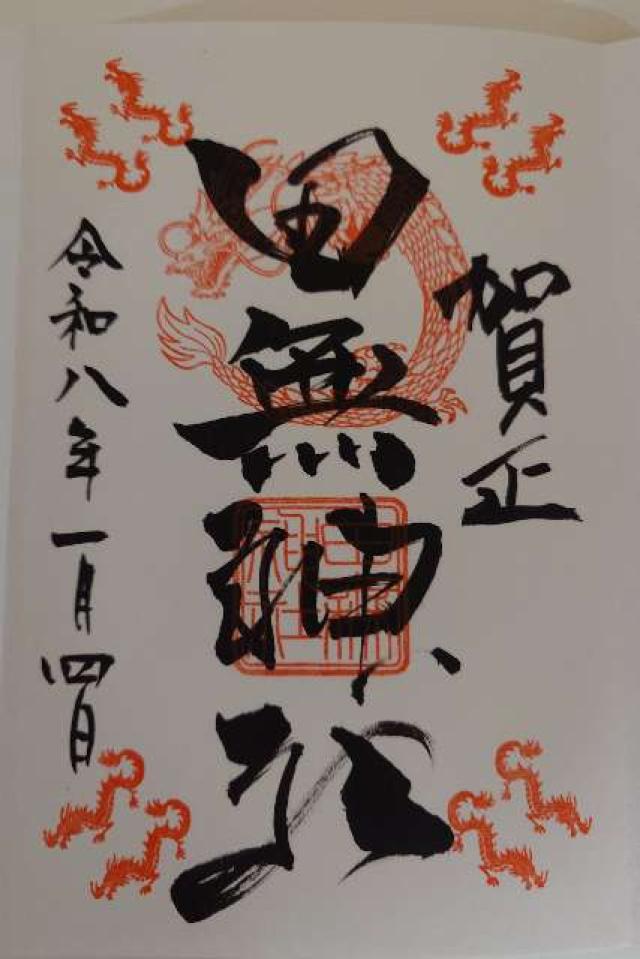 賀正
田無神社
令和八年一月四日